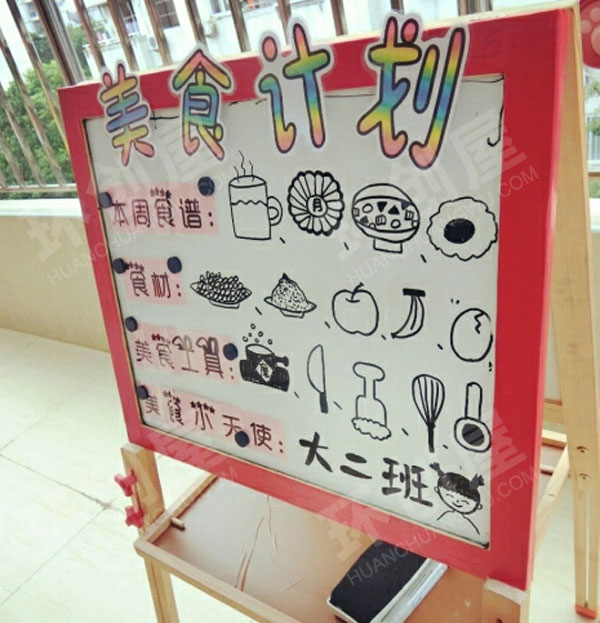 美食计划
本周食谱：
月
食材：
美食工具：
美食小天使：大二班
环创屋
HUANCHUANGWU.COM